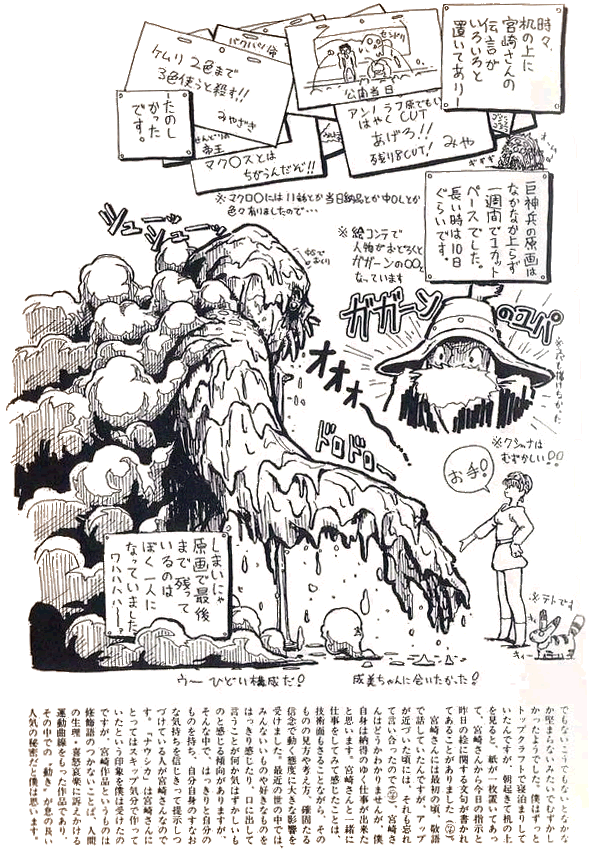 時々、
机の上に
宮崎さんの
伝言が
いろいろと
置いてあり—
センドリ
公開当日
パクパク!命
ケムリ 2色まで
3色使うと殺す!!
みやざき
アンノ ラフ原でもいい
はやく CUT
あげろ!!
残り8CUT!
みや
帝王
マクロスとは
ちがうんだぞ!!
—たのし
かった
です。
※マクロ〇には11話とか当日納品とか中0Lとか
色々ありましたので…
巨神兵の原画は
なかなか上らず
一週間で1カット
ペースでした。
長い時は10日
ぐらいです。
※絵コンテで
人物がおどろくと
ガガーンの〇〇と
なっています
ガガーン
のユパ
シュー
ジュー
オオォ
ドロドロー
※クシャナは
むずかしい!!
お手!
※テトです
しまいにゃ
原画で最後
まで残って
いるのは
ぼく一人に
なっていました
ワハハハハー!
ウー ひどい構成だ!
成美ちゃんに会いたかった!
でもないこうでもないとなかな
か堅まらないみたいでむずかし
かったようでした。僕はずっと
トップクラフトで寝泊まりして
いたんですが、朝起きて机の上
を見ると、紙が一枚置いてあっ
て、宮崎さんから今日の指示と
昨日の絵に関する文句が書かれ
てあることがありました(笑)。
宮崎さんには最初の頃、敬語
で話してたんですが、アップ
が近づいた頃には、それも忘れ
て言い合ってたので(笑)、宮崎さ
んはどうかわかりませんが、僕
自身は納得のゆく仕事が出来た
と思います。宮崎さんと一緒に
仕事をしてみて感じたことは、
技術面もさることながら、その
ものの見方や考え方、確固たる
信念で動く態度に大きな影響を
受けました。最近の世の中では、
みんないいものや好きなものを
はっきり感じたり、口に出して
言うことが何か気はずかしいも
のと感じる傾向がありますが、
そんな中で、はっきりと自分の
ものを持ち、自分自身のすなお
な気持ちを信じきって提示しつ
づけている人が宮崎さんなので
す。「ナウシカ」は宮崎さんに
とってはスキップ気分で作って
いたという印象を僕は受けたの
ですが、宮崎作品というものは
修飾語のつかないことば、人間
の生理・喜怒哀楽に訴えかける
運動曲線をもった作品であり、
その中での“動き”が息の長い
人気の秘密だと僕は思います。